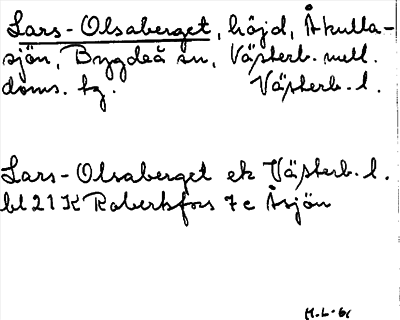 Lars-Olsaberget, höjd, Åkulla-
sjön, Bygdeå sn, Västerb. mell.
doms. tg. Västerb. l.
Lars-Olsaberget ek Västerb. l.
bl 21 K Robertsfors 7c Åsjön